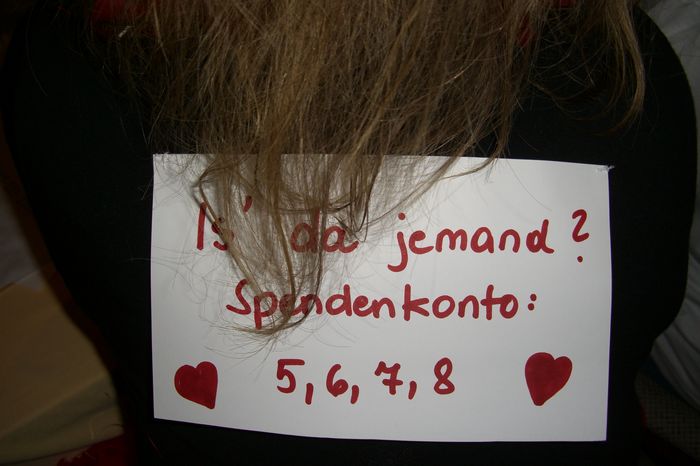 Is' da jemand?
Spendenkonto:
5, 6, 7, 8